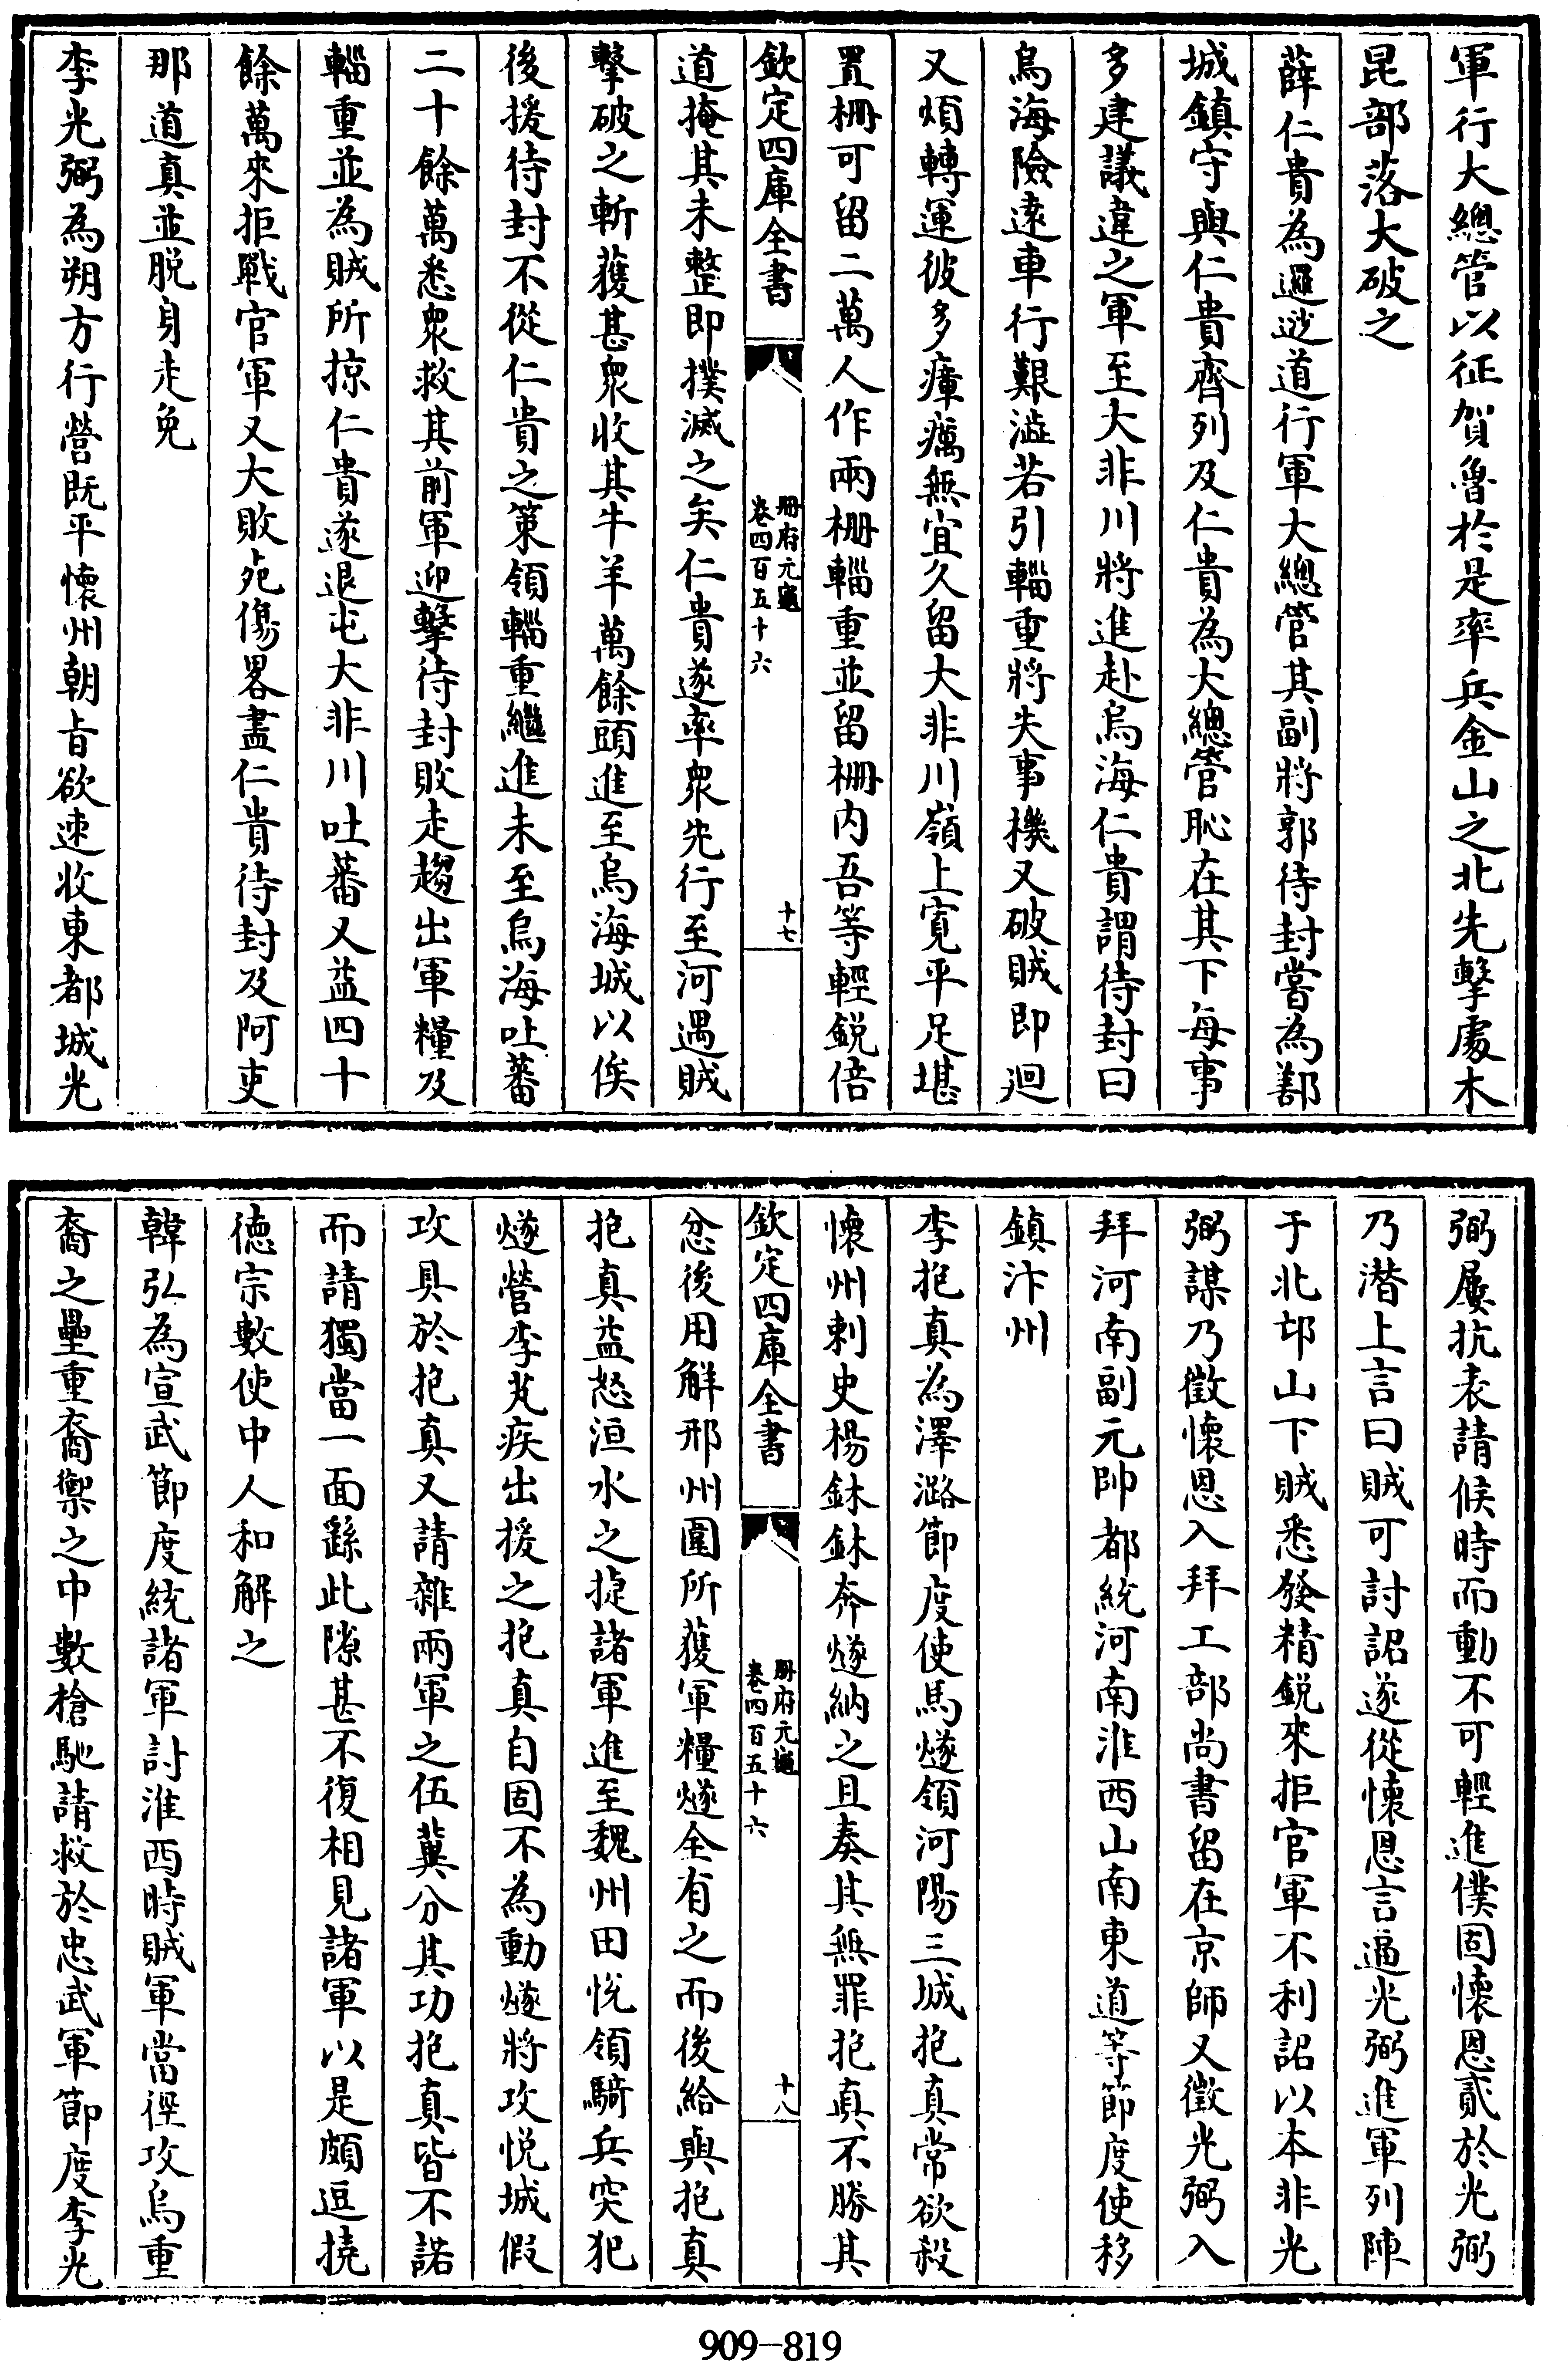 軍行大總管以征賀魯於是率兵金山之北先擊處木
昆部落大破之
薛仁貴為邏逤道行軍大總管其副將郭待封嘗為鄯
城鎮守與仁貴齊列及仁貴為大總管恥在其下每事
多建議違之軍至大非川將進赴烏海仁貴謂待封曰
烏海險遠車行艱澁若引輜重將失事機又破賊即迴
又煩轉運彼多瘴癘無宜久留大非川嶺上寛平足堪
置柵可留二萬人作兩柵輜重並留柵内吾等輕鋭倍
欽定四庫全書
冊府元龜
卷四百五十六
十七
道掩其未整即撲滅之矣仁貴遂率衆先行至河遇賊
擊破之斬獲甚衆收其牛羊萬餘頭進至烏海城以俟
後援待封不從仁貴之策領輜重繼進未至烏海吐蕃
二十餘萬悉衆救其前軍迎擊待封敗走趨出軍糧及
輜重並為賊所掠仁貴遂退屯大非川吐蕃又益四十
餘萬來拒戰官軍又大敗死傷畧盡仁貴待封及阿吏
那道真並脱身走免
李光弼為朔方行營既平懷州朝旨欲速收東都城光
弼屢抗表請候時而動不可輕進僕固懷恩貳於光弼
乃潛上言曰賊可討詔遂從懷恩言逼光弼進軍列陣
于北邙山下賊悉發精鋭來拒官軍不利詔以本非光
弼謀乃徵懷恩入拜工部尚書留在京師又徵光弼入
拜河南副元帥都統河南淮西山南東道等節度使移
鎮汴州
李抱真為澤潞節度使馬燧領河陽三城抱真常欲殺
懷州刺史楊鉥鉥奔燧納之且奏其無罪抱真不勝其
欽定四庫全書
冊府元龜
卷四百五十六
十八
忿後用解邢州圍所獲軍糧燧全有之而後給與抱真
抱真益怒洹水之捷諸軍進至魏州田悅領騎兵突犯
燧營李芃疾出援之抱真自固不為動燧將攻悦城假
攻具於抱真又請雜兩軍之伍冀分其功抱真皆不諾
而請獨當一面繇此隙甚不復相見諸軍以是頗逗撓
德宗數使中人和解之
韓弘為宣武節度統諸軍討淮西時賊軍當徑攻烏重
裔之壘重裔禦之中數槍馳請救於忠武軍節度李光
909-819